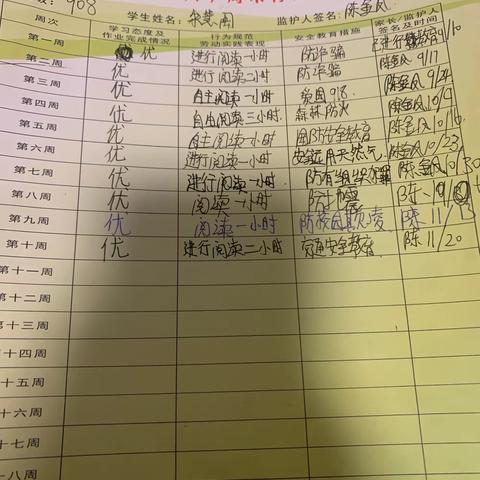 908 学生姓名: 监护人签名: 陈金凤
周次 学习态度及作业完成情况 行为规范劳动实践表现 安全教育措施 家长/监护人签名及时间
第一周 优 进行阅读一小时 防诈骗 9/10
第二周 优 进行阅读二小时 防诈骗 陈金凤 9/17
第三周 优 自主阅读一小时 爱国918 陈金凤 9/24
第四周 优 自由阅读三小时 森林防火 陈金凤 10/9
第五周 优 自主阅读一小时 国防安全教育 陈金凤 10/16
第六周 优 进行阅读一小时 安全用天然气 陈金凤 10/23
第七周 优 进行阅读一小时 陈金凤 10/30
第八周 优 阅读一小时 陈
第九周 优 阅读一小时 防校园欺凌 陈 11/13
第十周 优 进行阅读二小时 交通安全教育 陈 11/20
第十一周
第十二周
第十三周
第十四周
第十五周
第十六周
第十七周
第十八周